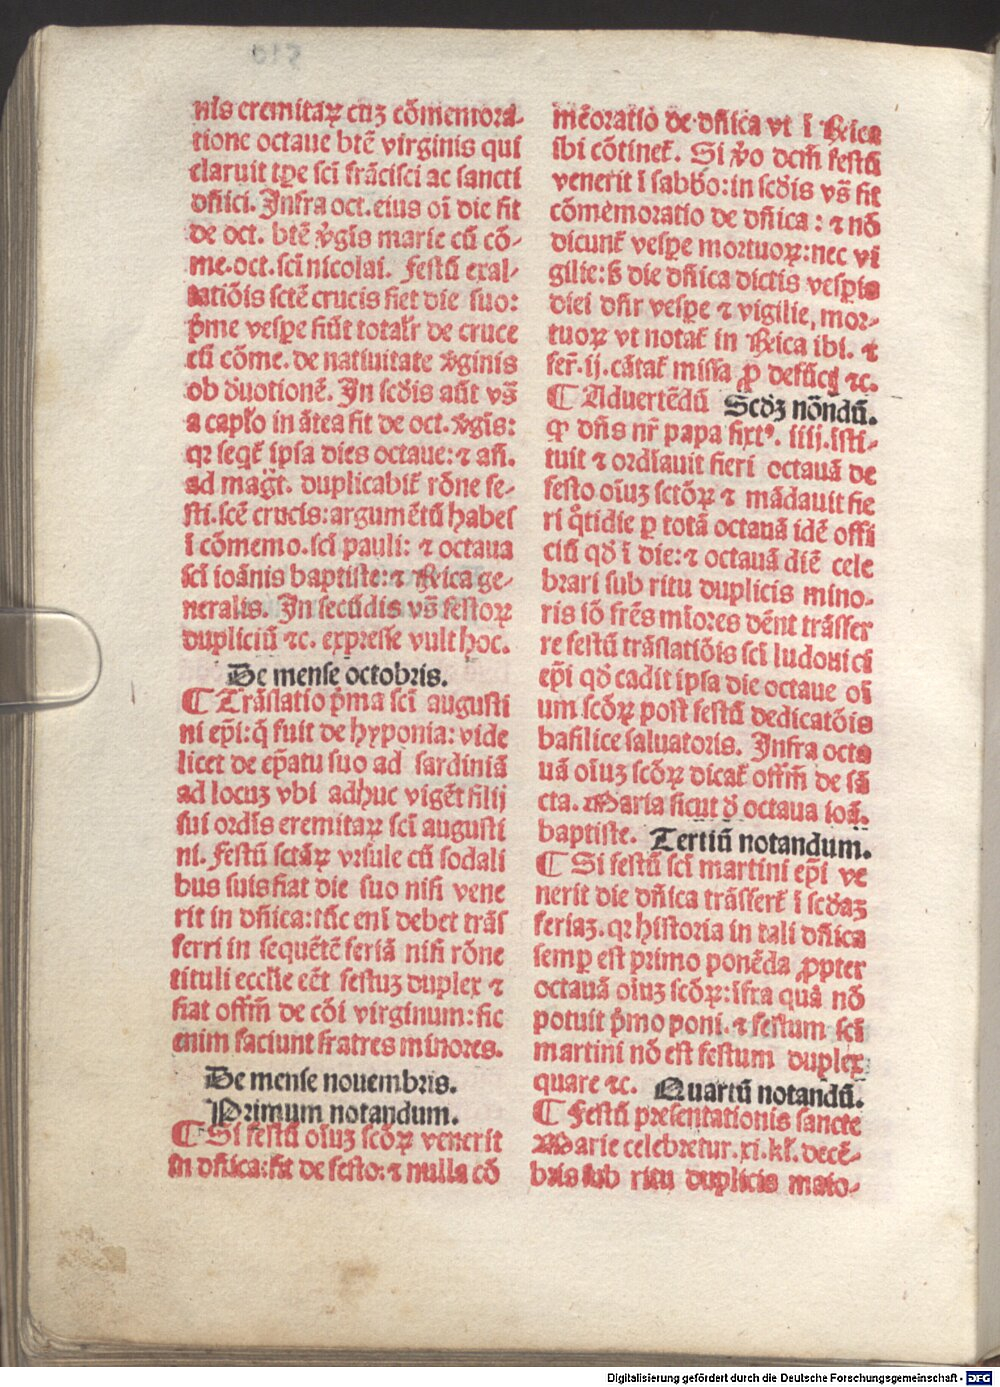 nis eremitaꝝ cuꝫ cōmemora-
tione octaue btē virginis qui
claruit tꝑe sci frācisci ac sancti
dñici. Infra oct. eius oī die fit
de oct. btē v̉gīs marie cū cō-
me. oct. sci nicolai. Festū exal-
tatiōis sctē crucis fiet die suo:
p̄me vesꝑe fiūt totalr̄ de cruce
cū cōme. de natiuitate v̉ginis
ob d̉uotionē. In scd̉is aūt vs̄
a capło in ātea fit de oct. v̉gīs:
qꝛ seqt̄ ipsa dies octaue: ⁊ añ.
ad magt̄. duplicabit̄ rōne fe-
sti. scē crucis: argumētū habes
ī cōmemo. sci pauli: ⁊ octaua
sci ioānis baptiste: ⁊ Rīca ge-
neralis. In secūdis vs̄ festoꝝ
dupliciū ⁊c. expresse vult hoc.
De mense octobris.
¶ Trāslatio p̄ma sci augusti
ni ep̄i: q̄ fuit de hyponia: vide
licet de ep̄atu suo ad sardiniā
ad locuꝫ vbi adhuc vigēt filij
sui ordīs eremitaꝝ sci augusti
ni. Festū sctāꝝ vrsule cū sodali
bus suis fiat die suo nisi vene
rit in dñica: tūc enī debet trās
ferri in sequētē feriā nisi rōne
tituli ecclīe eēt festuꝫ duplex ⁊
fiat offm̄ de cōi virginum: sic
enim faciunt fratres minores.
De mense nouembris.
Primum notandum.
¶ Si festū oīuꝫ scōꝝ venerit
in dñica: fit de festo. ⁊ nulla cō
mēoratio de dñica vt ī Rīca
ibi cōtinet̄. Si v̉o dcm̄ festū
venerit ī sabbō: in scd̉is vs̄ fit
cōmemoratio de dñica: ⁊ nō
dicunt̄ vesꝑe mortuoꝝ: nec vi
gilie: ß die dñica dictis vesꝑis
diei dn̄r vesꝑe ⁊ vigilie, mor-
tuoꝝ vt notat̄ in Rīca ibi. ⁊
fer̄. ij. cātat̄ missa ꝓ defūctꝭ ⁊c.
¶ Aduertēdū Scd̉ꝫ nōndū.
ꝙ dn̄s nr̄ papa sixtꝰ. iiij. īsti-
tuit ⁊ ordīauit fieri octauā de
festo oīuꝫ sctōꝝ ⁊ mādauit fie
ri q̄tidie ꝑ totā octauā idē offi
ciū qd̉ ī die: ⁊ octauā diē cele
brari sub ritu duplicis mino-
ris iō frēs mīores dēnt trāsfer
re festū trāslatiōis sci ludouici
ep̄i qd̉ cadit ipsa die octaue oī
um scōꝝ post festū dedicatōis
basilice saluatoris. Infra octa
uā oīuꝫ scōꝝ dicat̄ offm̄ de sā
cta. Maria sicut d̉ octaua ioā.
baptiste. Tertiū notandum.
¶ Si festū sci martini ep̄i ve
nerit die dñica trāsfert̄ ī scd̉aꝫ
feriaꝫ. qꝛ historia in tali dñica
semꝑ est primo ponēda ꝓpter
octauā oīuꝫ scōꝝ: īfra quā nō
potuit p̄mo poni. ⁊ festum sci
martini nō est festum duplex
quare ⁊c. Quartū notandū.
¶ Festū presentationis sancte
Marie celebretur. xi. kl̄. decē-
bris sub ritu duplicis maio-
Digitalisierung gefördert durch die Deutsche Forschungsgemeinschaft - DFG